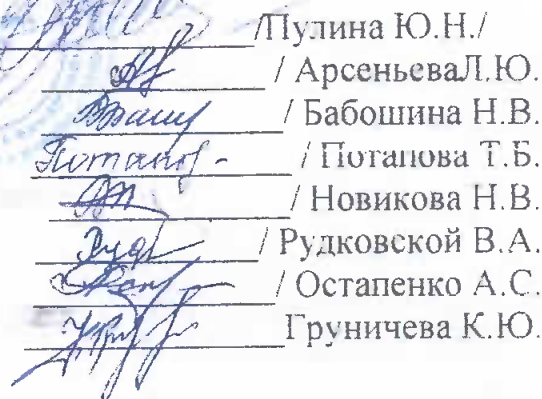 /Пулина Ю.Н./
/ АрсеньеваЛ.Ю.
/ Бабошина Н.В.
Потапов- / Потапова Т.Б.
/ Новикова Н.В.
/ Рудковской В.А.
/ Остапенко А.С.
Груничева К.Ю.